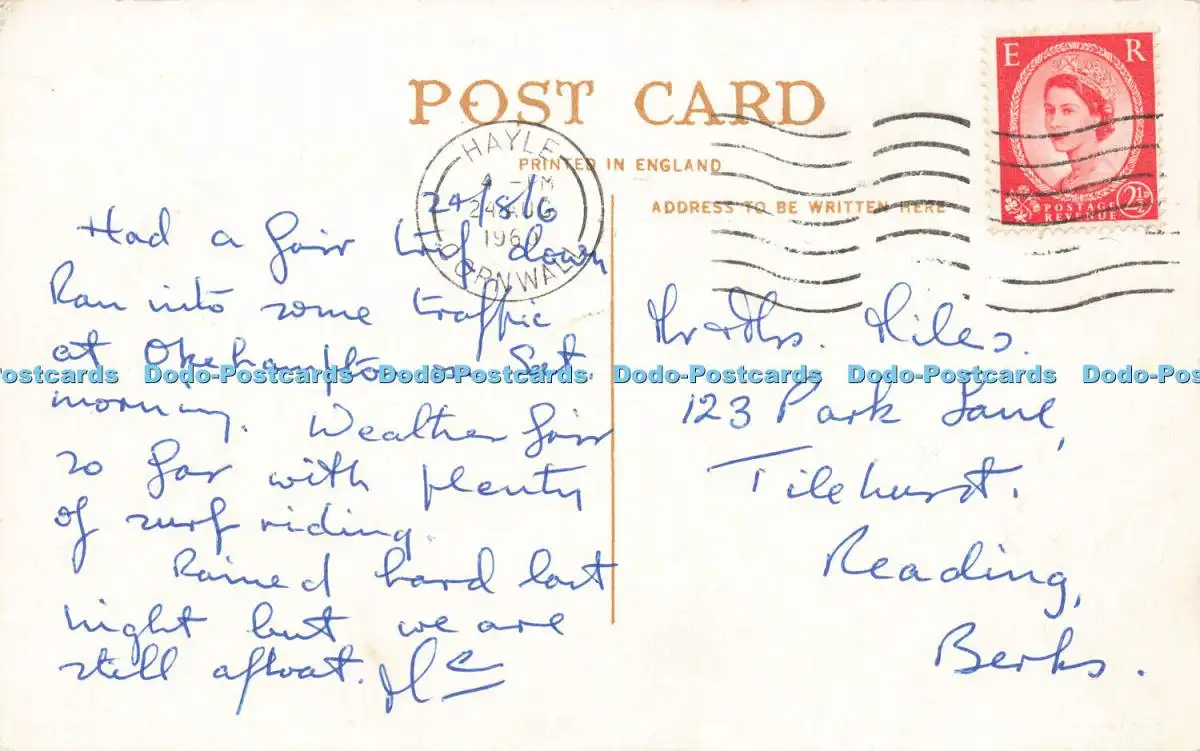 POST CARD
PRINTED IN ENGLAND
ADDRESS TO BE WRITTEN HERE
E R
POSTAGE
REVENUE
2½
HAYLE
4 - PM
24 AUG
1960
CORNWALL
24/8/6
Had a fair trip down
Ran into some traffic
at Okehampton on Sat.
morning. Weather fair
so far with plenty
of surf riding.
Rained hard last
night but we are
still afloat.
Mr & Mrs. Hiles.
123 Park Lane,
Tilehurst.
Reading,
Berks.
Dodo-Postcards Dodo-Postcards Dodo-Postcards Dodo-Postcards Dodo-Postcards Dodo-Pos